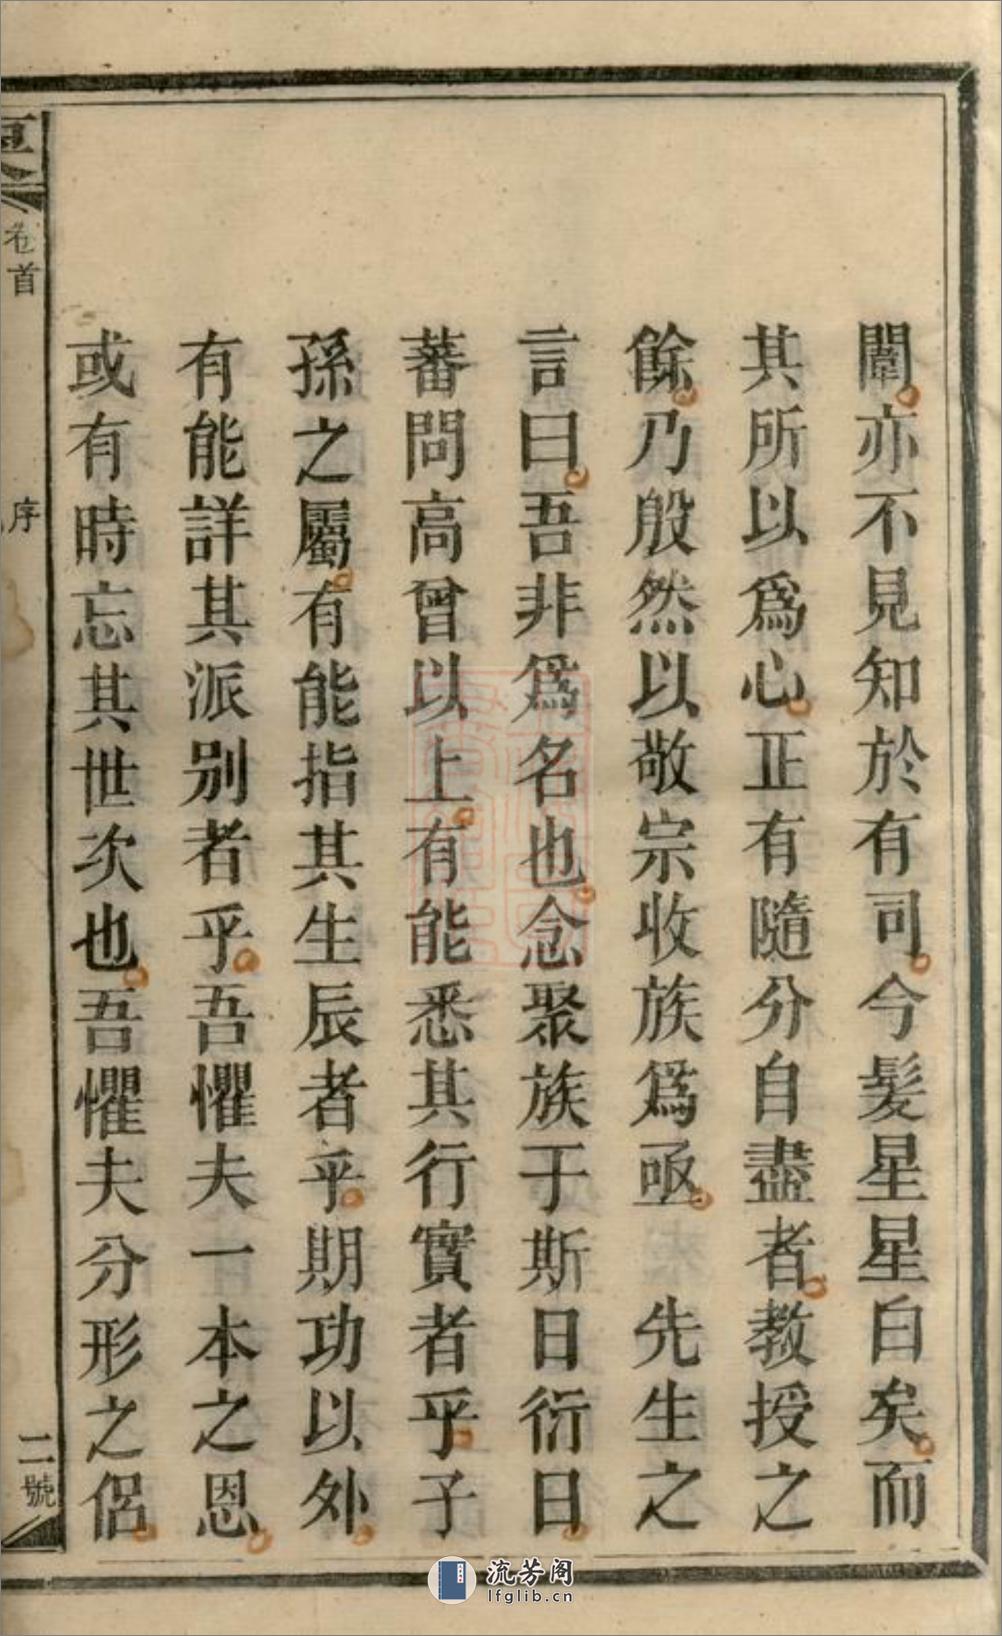 闈亦不見知於有司今髮星星白矣而
其所以爲心正有隨分自盡者教授之
餘乃殷然以敬宗收族爲亟　先生之
言曰吾非爲名也念聚族于斯日衍日
蕃問高曾以上有能悉其行實者乎子
孫之屬有能指其生辰者乎期功以外
有能詳其派別者乎吾懼夫一本之恩
或有時忘其世次也吾懼夫分形之侶
卷首
序
二號
流芳阁
lfglib.cn